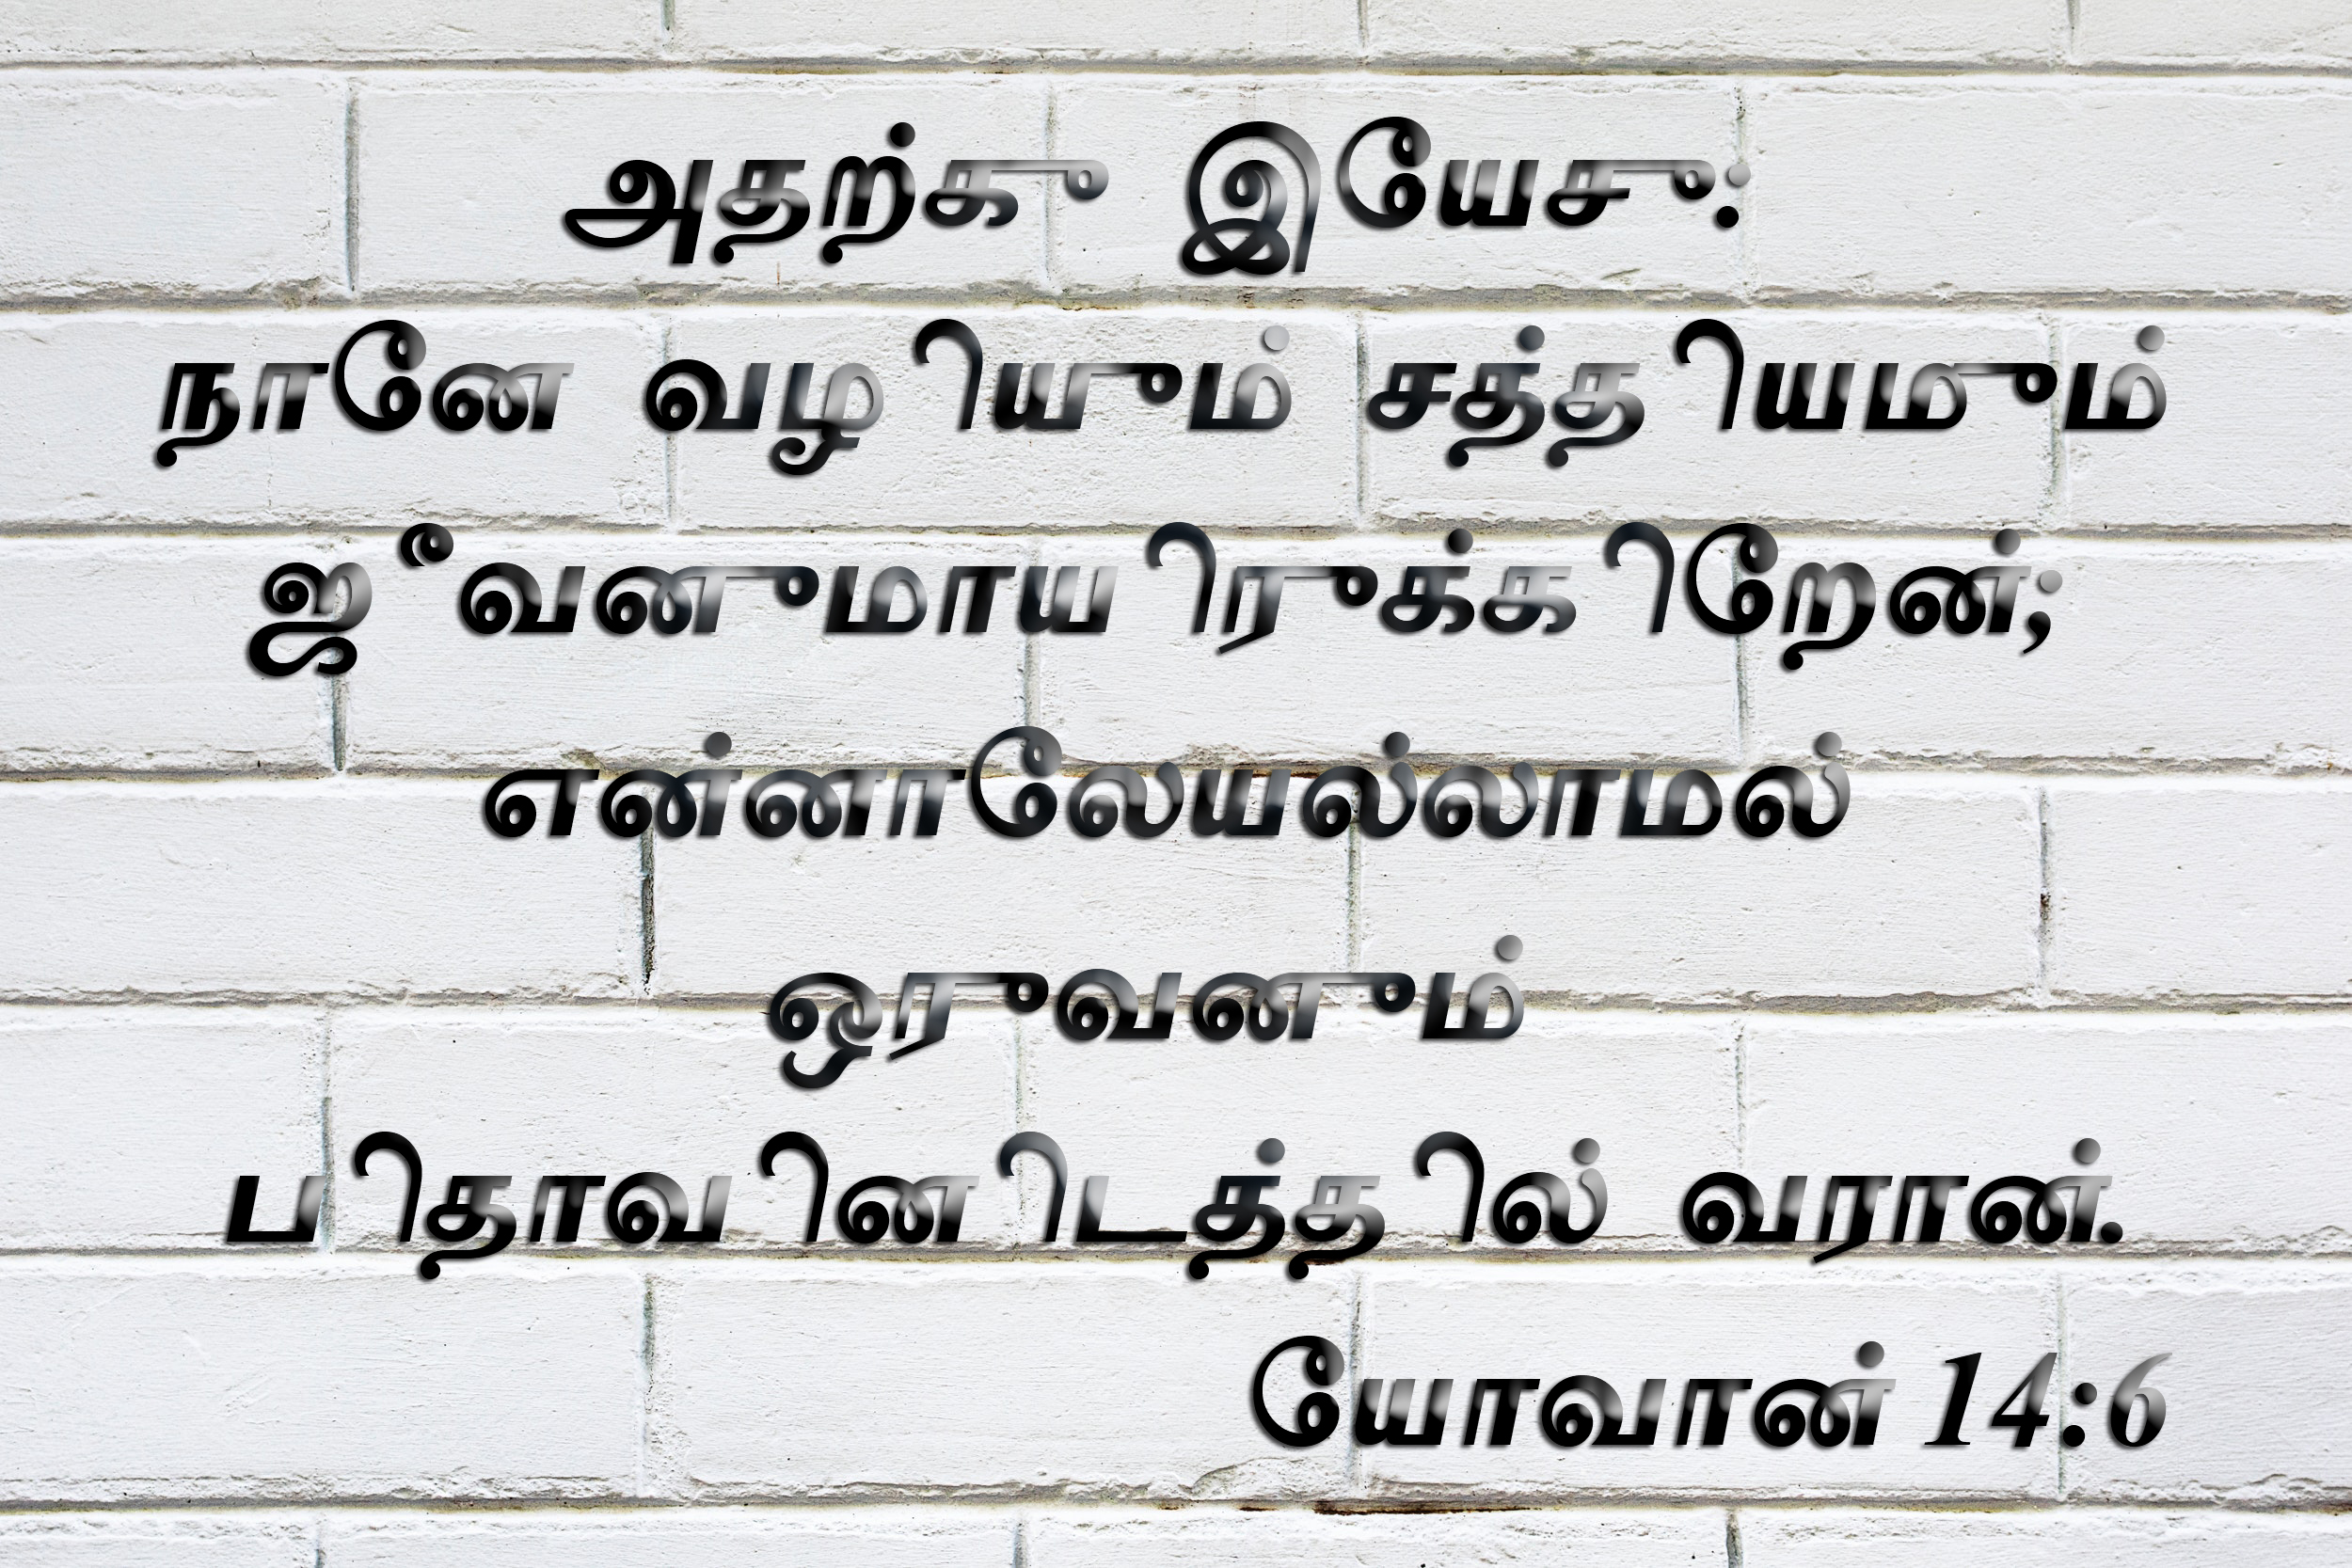 அதற்கு இயேசு:
நானே வழியும் சத்தியமும்
ஜீவனுமாயிருக்கிறேன்;
என்னாலேயல்லாமல்
ஒருவனும்
பிதாவினிடத்தில் வரான்.
யோவான் 14:6